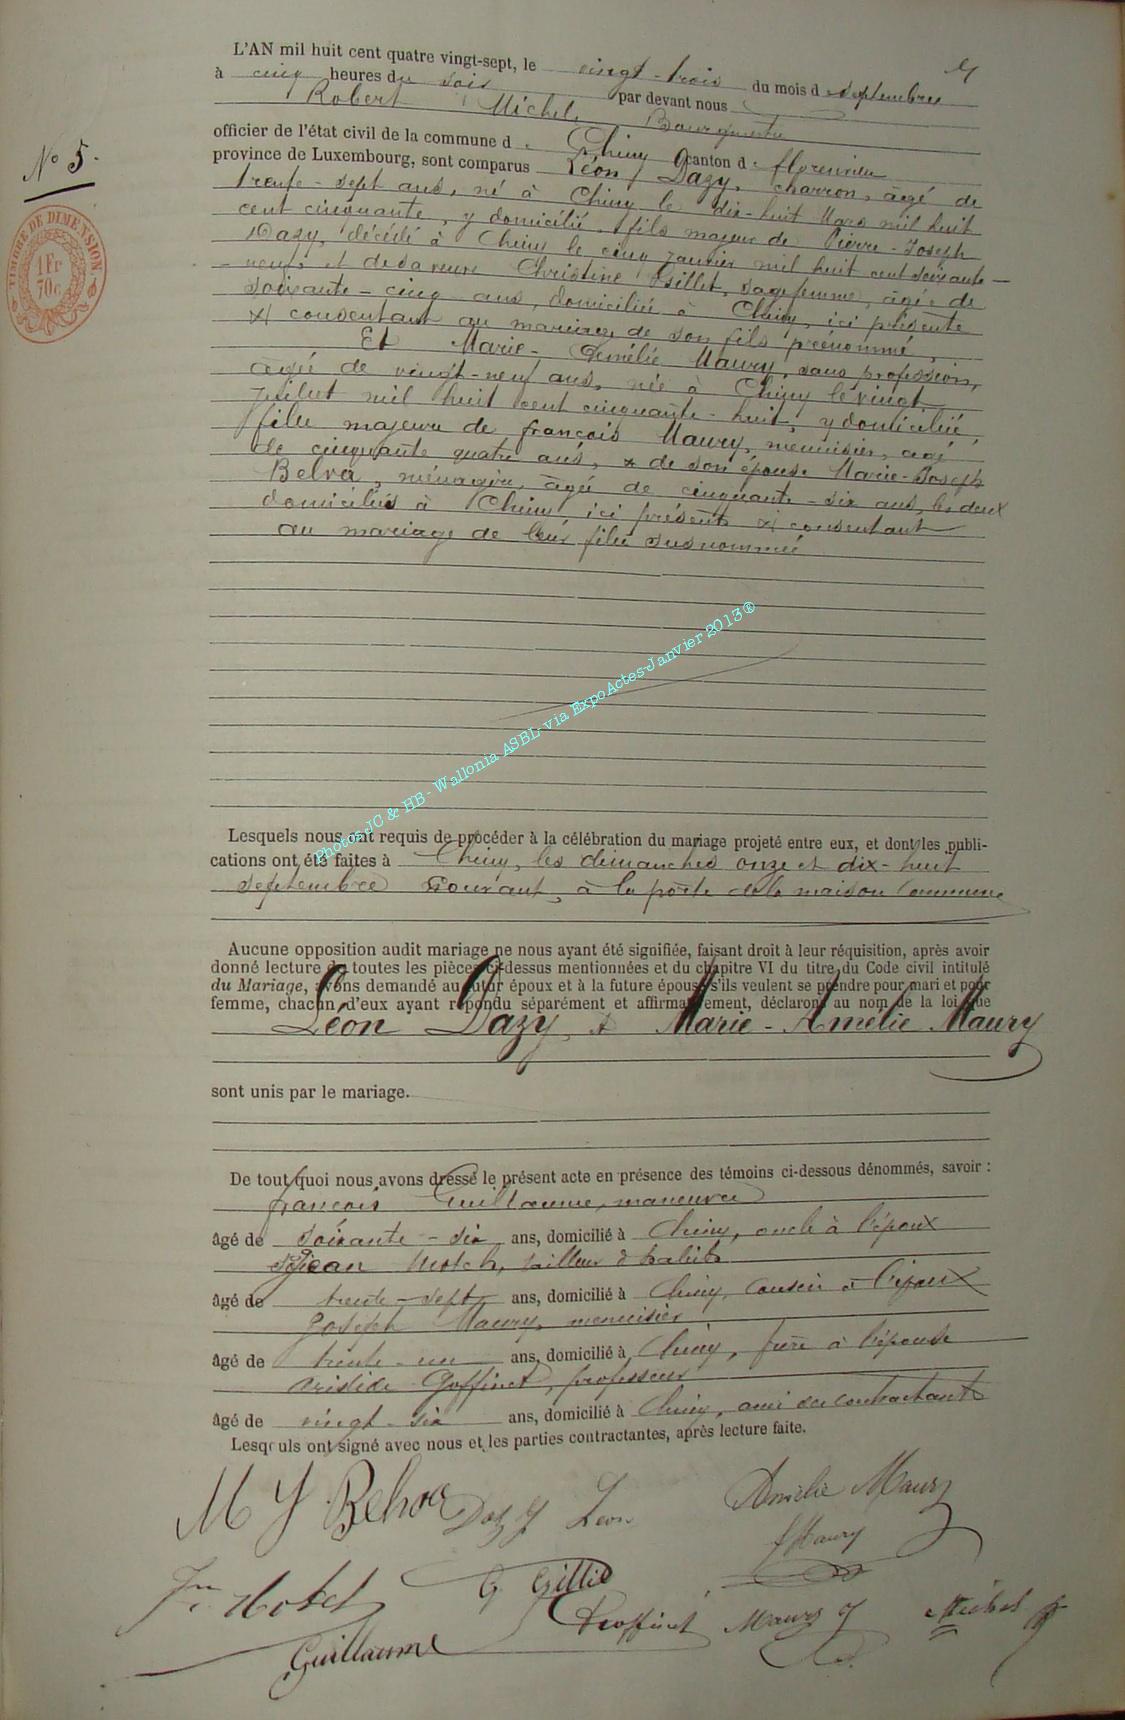 5
L'AN mil huit cent quatre vingt-sept, le vingt-trois du mois d e septembre
à cinq heures du soir par devant nous
Robert Michel Bourgmestre
officier de l'état civil de la commune d e Chiny canton d e florenville
province de Luxembourg, sont comparus Léon Dazy, charron, âgé de
trente-sept ans, né à Chiny le dix-huit Mars mil huit
cent cinquante, y domicilié, fils majeur de Pierre-Joseph
Dazy, décédé à Chiny le cinq janvier mil huit cent soixante-
neuf, et de sa veuve Christine Gillet, sagefemme, âgée de
soixante-cinq ans, domiciliée à Chiny, ici présente
et consentant au mariage de son fils prénommé,
Et Marie-Amélie Maury, sans profession,
âgée de vingt-neuf ans, née à Chiny le vingt
juillet mil huit cent cinquante-huit, y domiciliée,
fille majeure de françois Maury, menuisier, agé
de cinquante quatre ans, & de son épouse Marie-Joseph
Belva, ménagère, âgée de cinquante-six ans, les deux
domiciliés à Chiny, ici présents et consentant
au mariage de leur fille susnommée
Lesquels nous ont requis de procéder à la célébration du mariage projeté entre eux, et dont les publi-
cations ont été faites à Chiny, les dimanches onze et dix-huit
septembre courant, à la porte de la maison Commune
Aucune opposition audit mariage ne nous ayant été signifiée, faisant droit à leur réquisition, après avoir
donné lecture de toutes les pièces ci-dessus mentionnées et du chapitre VI du titre du Code civil intitulé
du Mariage, avons demandé au futur époux et à la future épouse s'ils veulent se prendre pour mari et pour
femme, chacun d'eux ayant répondu séparément et affirmativement, déclarons au nom de la loi que
Léon Dazy, & Marie-Amélie Maury
sont unis par le mariage.
De tout quoi nous avons dressé le présent acte en présence des témoins ci-dessous dénommés, savoir :
françois Guillaume, manœuvre
âgé de soixante-six ans, domicilié à Chiny, oncle à l'époux
Jean Motch, tailleur d'habits
âgé de trente-sept ans, domicilié à Chiny, cousin à l'époux
Joseph Maury, menuisier
âgé de trente-un ans, domicilié à Chiny, frère à l'épouse
Aristide Goffinet, professeur
âgé de vingt-six ans, domicilié à Chiny, ami des contractants
Lesquels ont signé avec nous et les parties contractantes, après lecture faite.
M J Belva Dazy Léon Amélie Maury
f Maury
Jn Motch Gillet
Goffinet Maury J Michel
Guillaume
N° 5.
TIMBRE DE DIMENSION.
1 Fr
70c
Photos JC & HB - Wallonia ASBL via ExpoActes-Janvier 2013®